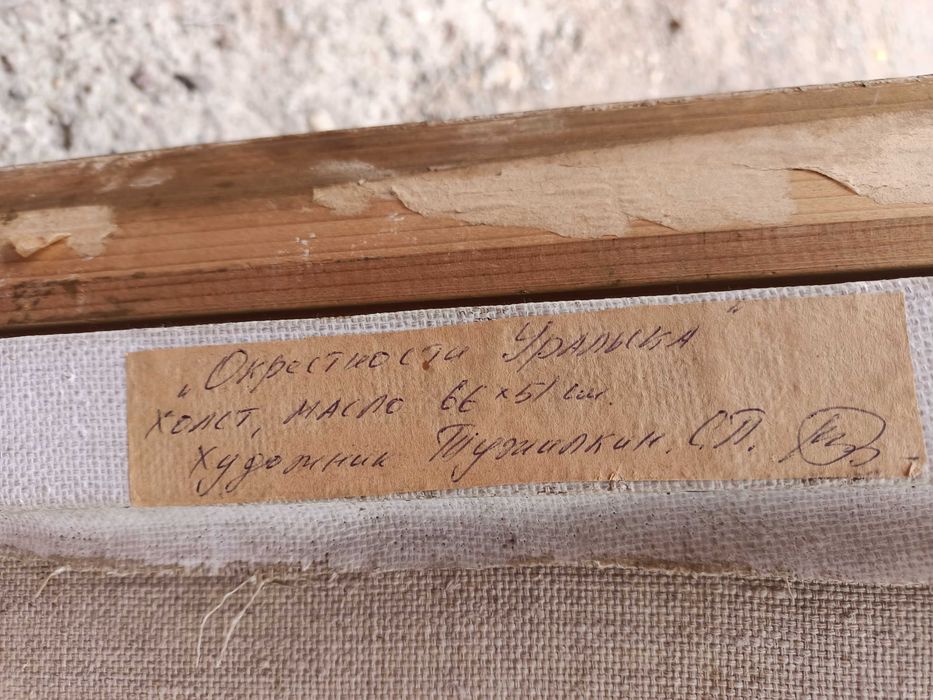 „Окрестности Уральска"
холст, масло 66×51 см.
Художник Тужилкин. С.П.